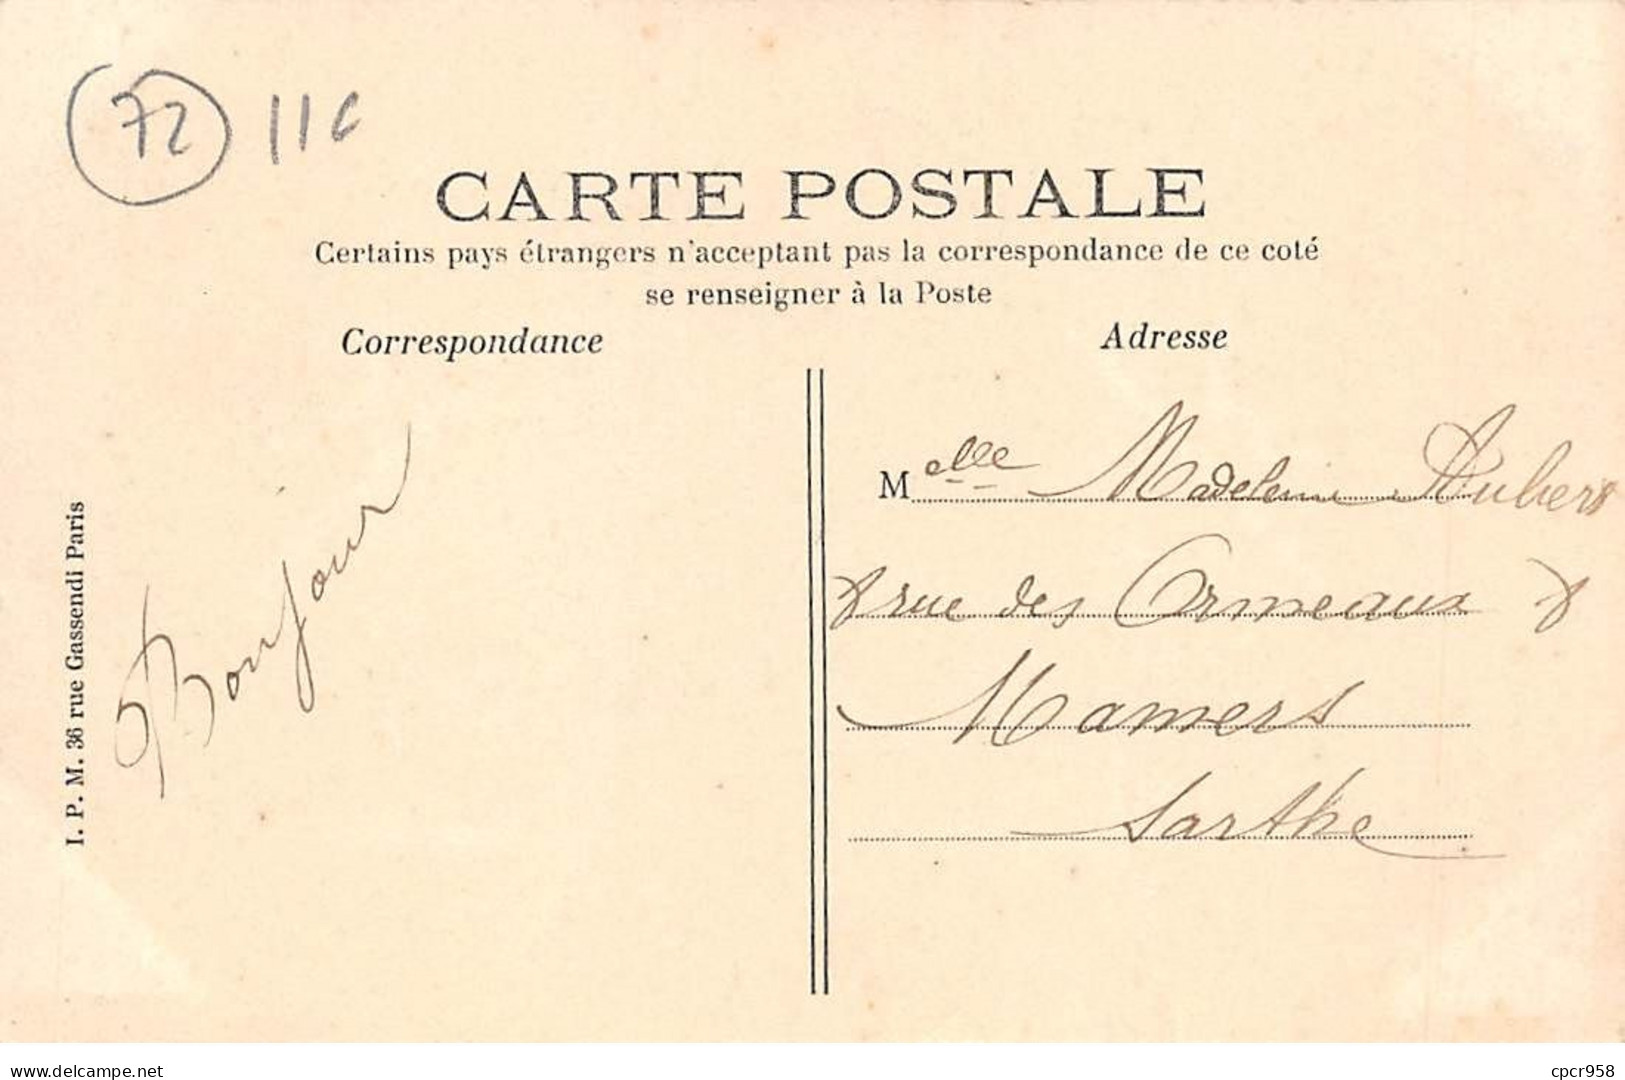 72 116
CARTE POSTALE
Certains pays étrangers n'acceptant pas la correspondance de ce coté
se renseigner à la Poste
Correspondance
Adresse
Bonjour
Melle Madeleine Aubers
rue des Ormeaux
Mamers
Sarthe
I. P. M. 36 rue Gassendi Paris
delcampe.net
cpcr958